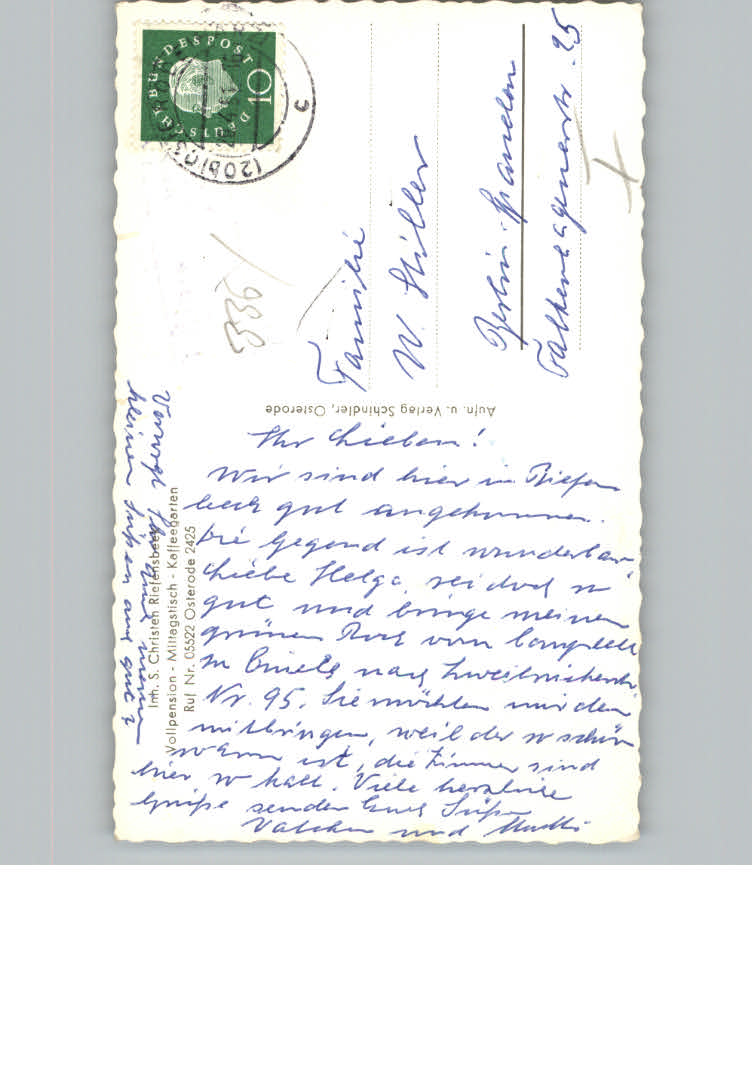 DEUTSCHE BUNDESPOST
10
(20b)
c
336
Familie
W. Stiller
Berlin-Spandau
Falkenhagenerstr. 25
Aufn. u. Verlag Schindler, Osterode
Inh. S. Christen Riefensbeek
Vollpension - Mittagstisch - Kaffeegarten
Ruf Nr. 05522 Osterode 2425
Ihr Lieben!
Wir sind hier in Riefens
beek gut angekommen.
Die Gegend ist wunderbar,
Liebe Helga, sei doch so
gut und bringe meinen
grünen Rock vom
zu nach
Nr. 95. Sie möchten mir den
mitbringen, weil der so schön
warm ist, die Zimmer sind
hier so kalt. Viele herzliche
Grüße senden Euch Süße
und Mutti
meinen
kleinen Süßen aus gut?